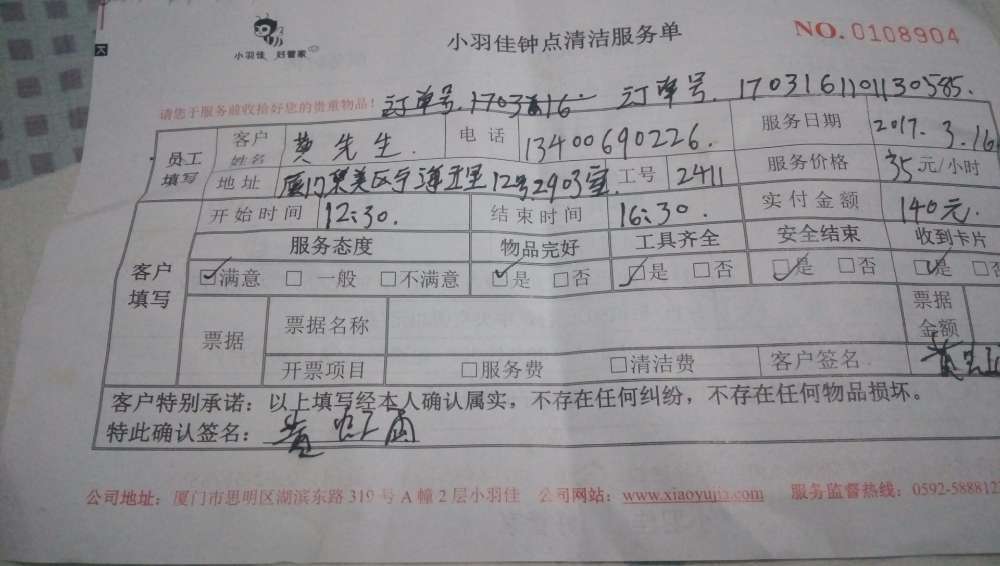 小羽佳 好管家
小羽佳钟点清洁服务单
NO. 0108904
请您于服务前收拾好您的贵重物品! 订单号.1703 16. 订单号. 1703161101130585.
员工填写 客户姓名 黄先生. 电话 13400690226. 服务日期 2017.3.16
地址 厦门集美区宁海五里12号2903室. 工号 2411 服务价格 35元/小时
客户填写 开始时间 12:30. 结束时间 16:30. 实付金额 140元.
服务态度 物品完好 工具齐全 安全结束 收到卡片
☑满意 □一般 □不满意 ☑是 □否 ☑是 □否 ☑是 □否 ☑是 □否
票据 票据名称 票据金额
开票项目 □服务费 □清洁费 客户签名 黄
客户特别承诺:以上填写经本人确认属实,不存在任何纠纷,不存在任何物品损坏。
特此确认签名: 黄
公司地址:厦门市思明区湖滨东路319号A幢2层小羽佳 公司网站:www.xiaoyujia.com 服务监督热线:0592-5888127